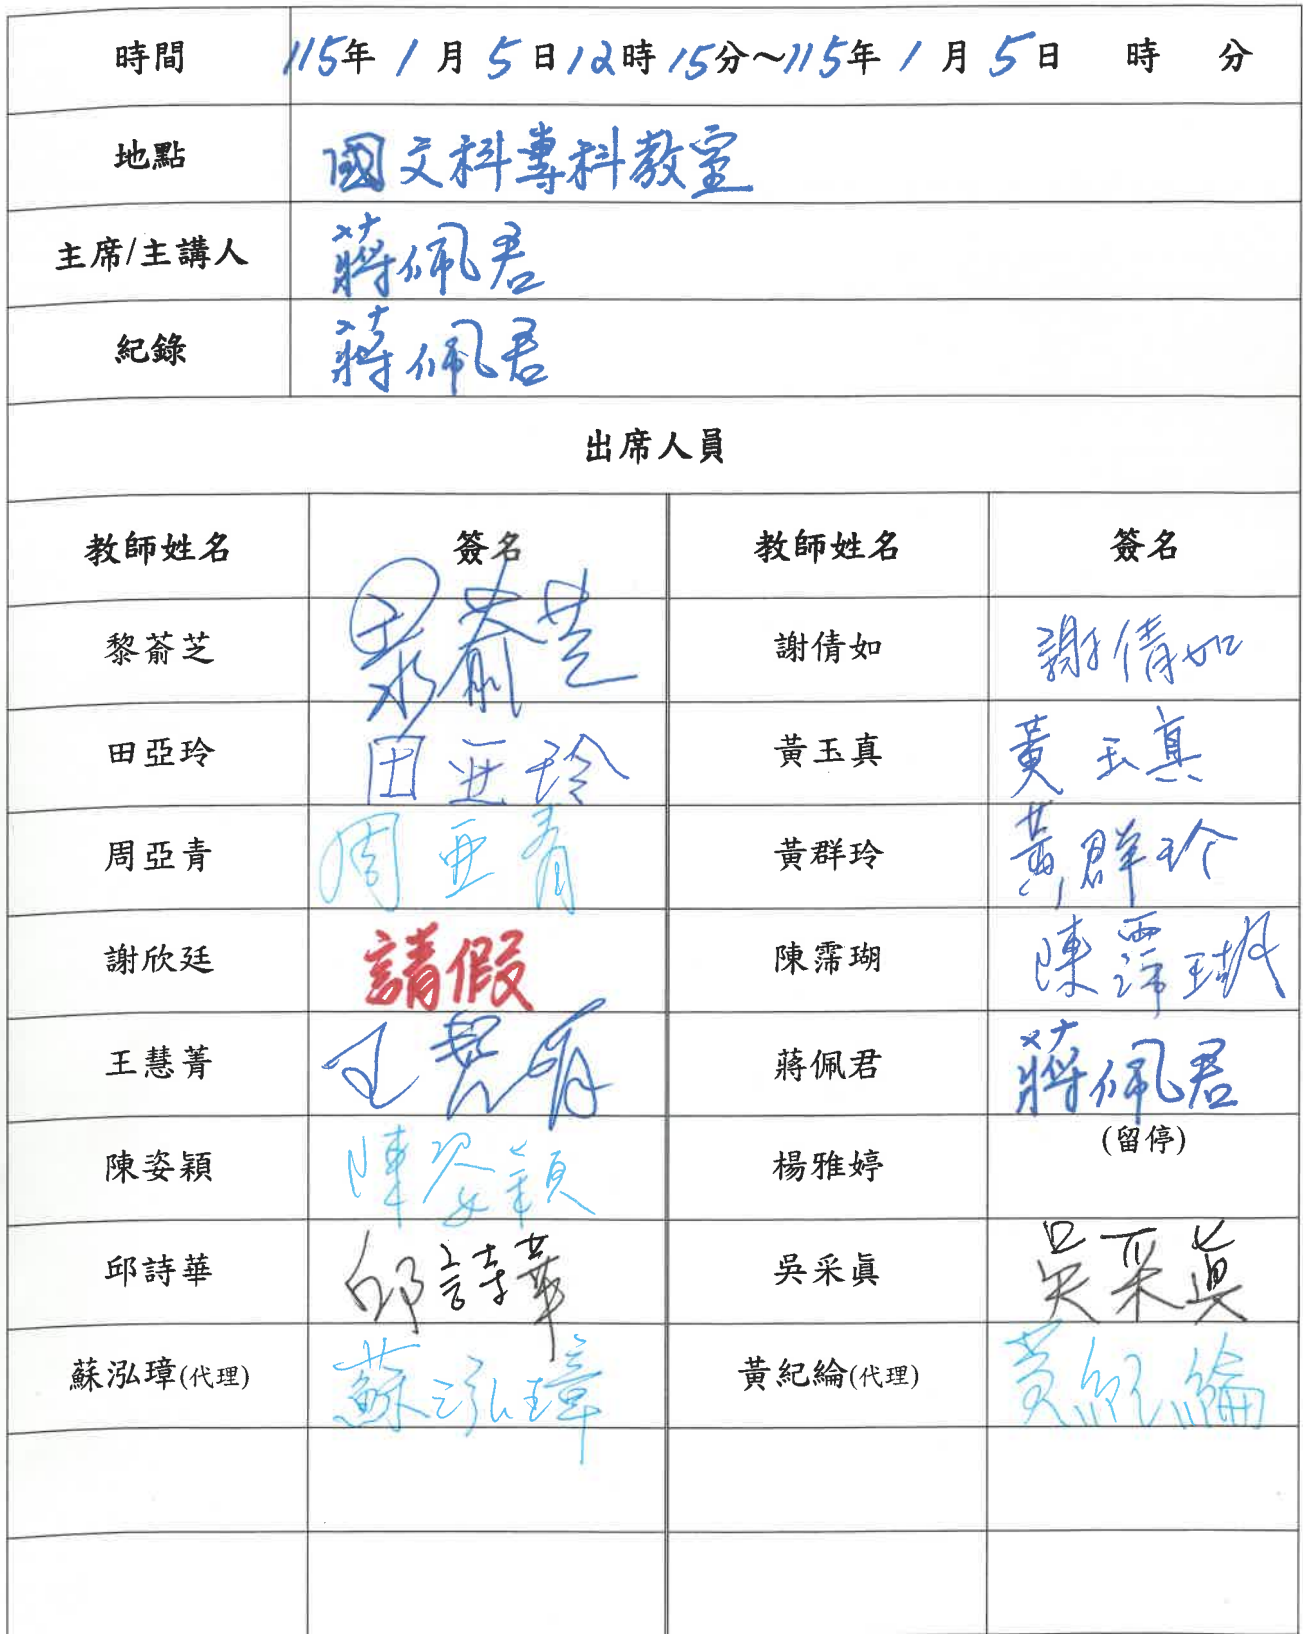 時間 115年 1 月 5 日 12 時 15 分～115年 1 月 5 日 時 分
地點 國文科專科教室
主席/主講人 蔣佩君
紀錄 蔣佩君
出席人員
教師姓名 簽名 教師姓名 簽名
黎萮芝 黎萮芝 謝倩如 謝倩如
田亞玲 田亞玲 黃玉真 黃玉真
周亞青 周亞青 黃群玲 黃群玲
謝欣廷 請假 陳霈瑚 陳霈瑚
王慧菁 王慧菁 蔣佩君 蔣佩君
陳姿穎 陳姿穎 楊雅婷 (留停)
邱詩華 邱詩華 吳采眞 吳采眞
蘇泓璋(代理) 蘇泓璋 黃紀綸(代理) 黃紀綸